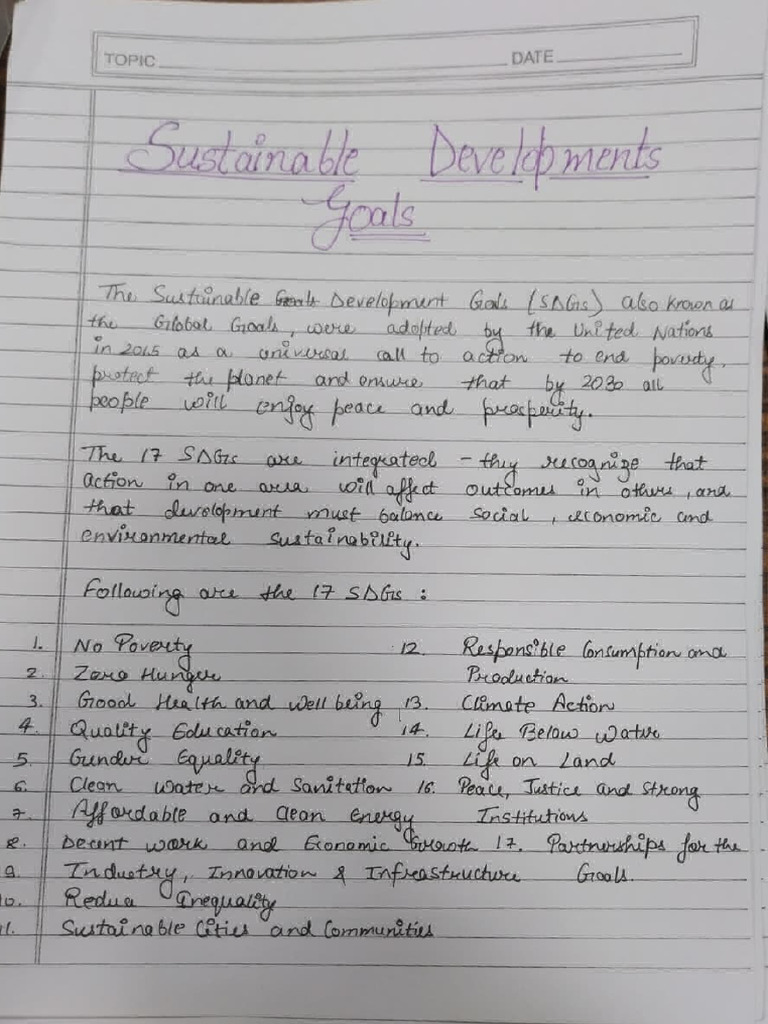 TOPIC DATE
Sustainable Developments
Goals
The Sustainable Goals Development Goals (SDGs) also known as
the Global Goals, were adopted by the United Nations
in 2015 as a universal call to action to end poverty,
protect the planet and ensure that by 2030 all
people will enjoy peace and prosperity.
The 17 SDGs are integrated - they recognize that
action in one area will affect outcomes in others, and
that development must balance social, economic and
environmental sustainability.
Following are the 17 SDGs :
1. No Poverty
2. Zero Hunger
3. Good Health and well being
4. Quality Education
5. Gender Equality
6. Clean Water and Sanitation
7. Affordable and Clean Energy
8. Decent work and Economic Growth
9. Industry, Innovation & Infrastructure
10. Reduce Inequality
11. Sustainable Cities and Communities
12. Responsible Consumption and
Production
13. Climate Action
14. Life Below Water
15. Life on Land
16. Peace, Justice and Strong
Institutions
17. Partnerships for the
Goals.